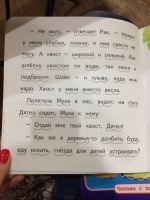 — Не могу, — отвечает Рак. — Номер
у меня слабый, ломкий, а ими грести не
могу. А хвост — широкий и сильный. Как
шлёпну хвостом по воде, так меня и
подбросит. Шлёп — и плыву, куда мне
надо. Хвост у меня вместо весла.
Полетела Муха в лес, видит: на суку
Дятел сидит. Муха к нему:
— Отдай мне твой хвост, Дятел!
— Как же я деревья-то долбить буду,
еду искать, гнёзда для детей устраивать?
Читаем с